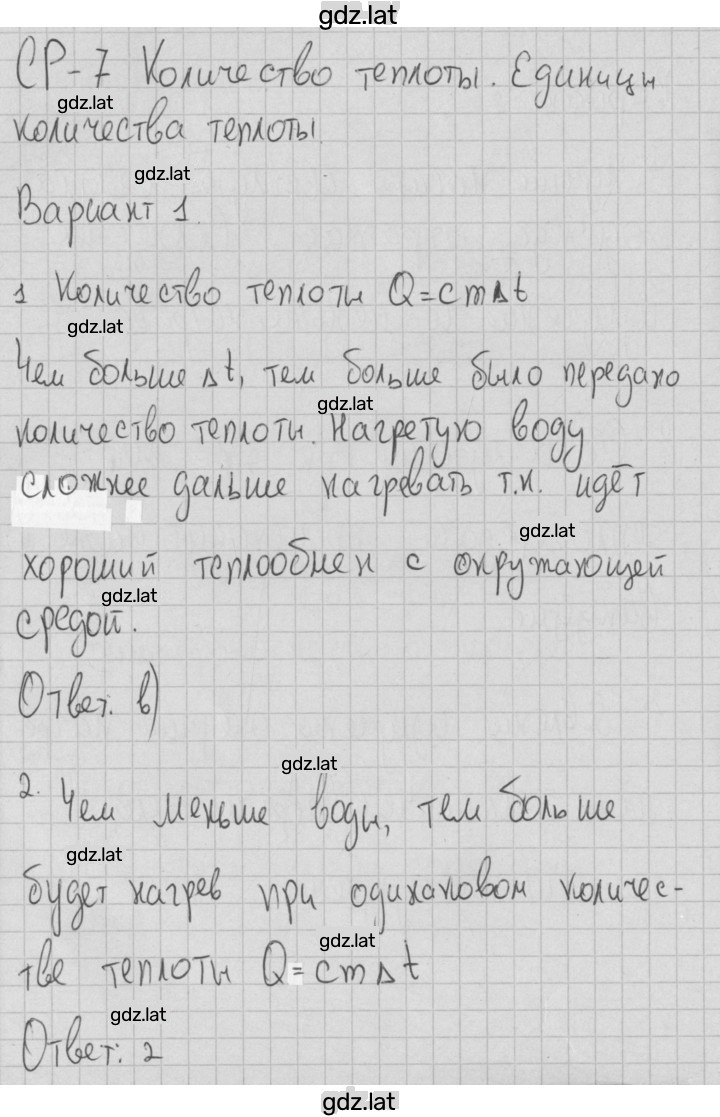 gdz.lat
СР-7 Количество теплоты. Единицы
gdz.lat
количества теплоты
gdz.lat
Вариант 1.
1 Количество теплоты Q=cmΔt
gdz.lat
Чем больше Δt, тем больше было передано
gdz.lat
количество теплоты. Нагретую воду
сложнее дальше нагревать т.к. идёт
gdz.lat
хороший теплообмен с окружающей
gdz.lat
средой.
Ответ: в)
gdz.lat
2. Чем меньше воды, тем больше
gdz.lat
будет нагрев при одинаковом количес-
gdz.lat
тве теплоты Q=cmΔt
gdz.lat
Ответ: 2
gdz.lat